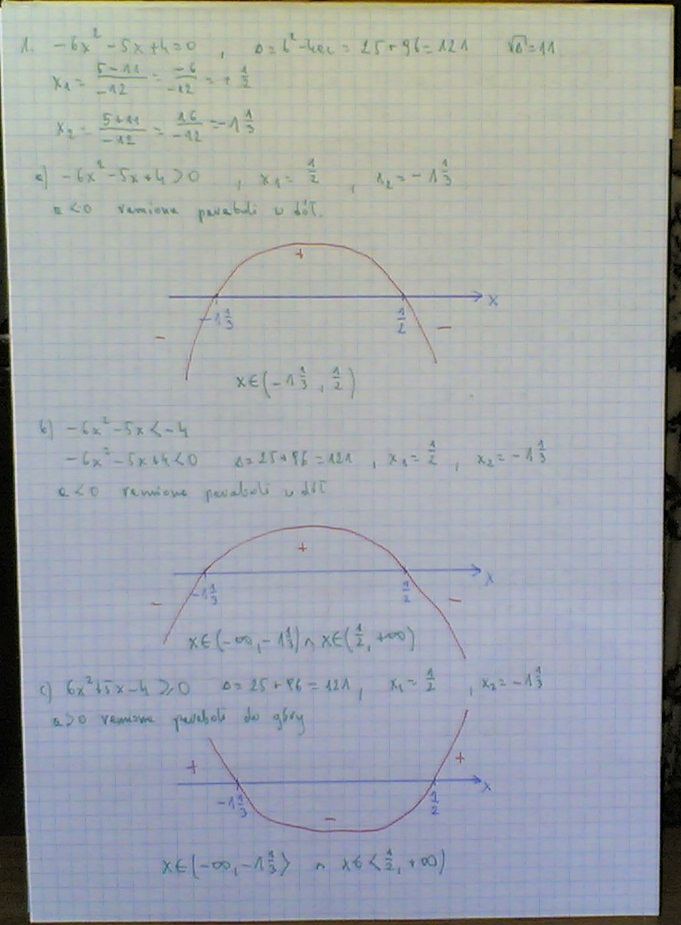 1. -6x² -5x+4=0 , Δ=b²-4ac = 25+96=121 √Δ=11
x₁= 5-11/-12 = -6/-12 = + 1/2
x₂= 5+11/-12 = 16/-12 = -1 1/3
a) -6x² -5x+4>0 , x₁= 1/2 , x₂= -1 1/3
a<0 ramiona paraboli w dół.
+
-1 1/3 1/2 x
- -
x∈(-1 1/3, 1/2)
b) -6x² -5x<-4
-6x² -5x+4<0 Δ=25+96=121 , x₁= 1/2 , x₂= -1 1/3
a<0 ramiona paraboli w dół
+
-1 1/3 1/2 x
- -
x∈(-∞,-1 1/3) ∩ x∈(1/2, +∞)
c) 6x²+5x-4⩾0 Δ=25+96=121, x₁= 1/2 , x₂= -1 1/3
a>0 ramiona paraboli do góry
+ +
-1 1/3 1/2 x
-
x∈(-∞,-1 1/3> ∩ x∈<1/2, +∞)